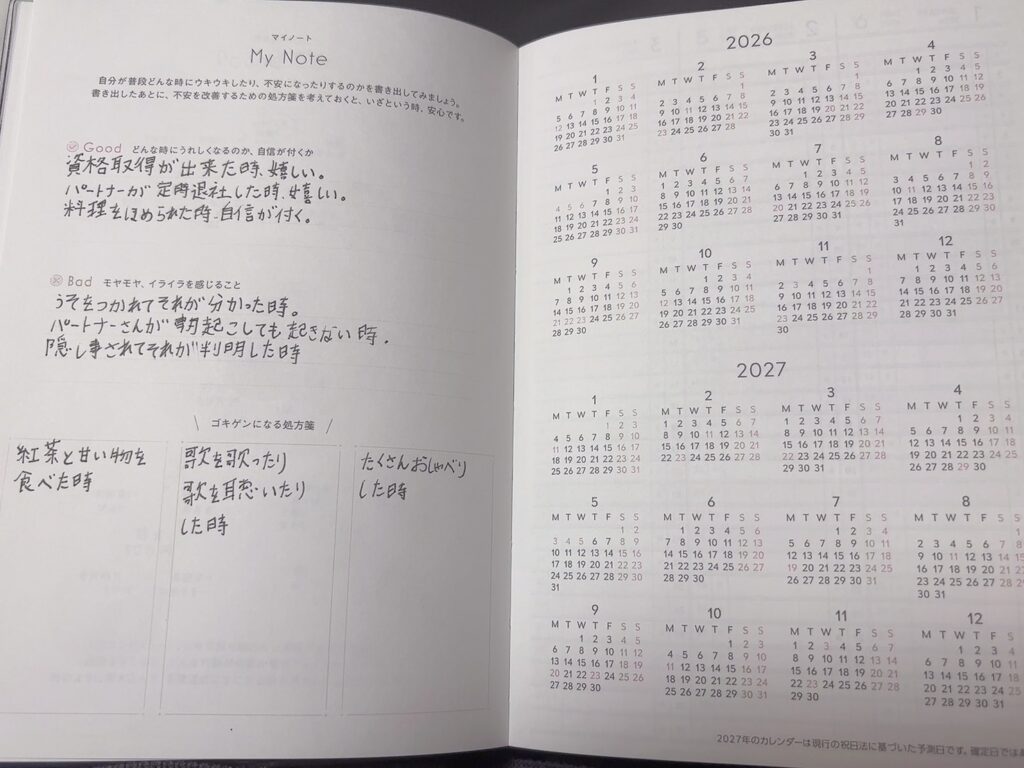 マイノート
My Note
自分が普段どんな時にウキウキしたり、不安になったりするのかを書き出してみましょう。
書き出したあとに、不安を改善するための処方箋を考えておくと、いざという時、安心です。
Good どんな時にうれしくなるのか、自信が付くか
資格取得が出来た時、嬉しい。
パートナーが定時退社した時、嬉しい。
料理をほめられた時、自信が付く。
Bad モヤモヤ、イライラを感じること
うそをつかれてそれが分かった時。
パートナーさんが朝起こしても起きない時.
隠し事されてそれが判明した時
ゴキゲンになる処方箋
紅茶と甘い物を
食べた時
歌を歌ったり
歌を聴いたり
した時
たくさんおしゃべり
した時
2026
1
M T W T F S S
1 2 3 4
5 6 7 8 9 10 11
12 13 14 15 16 17 18
19 20 21 22 23 24 25
26 27 28 29 30 31
2
M T W T F S S
1
2 3 4 5 6 7 8
9 10 11 12 13 14 15
16 17 18 19 20 21 22
23 24 25 26 27 28
3
M T W T F S S
1
2 3 4 5 6 7 8
9 10 11 12 13 14 15
16 17 18 19 20 21 22
23 24 25 26 27 28 29
30 31
4
M T W T F S S
1 2 3 4 5
6 7 8 9 10 11 12
13 14 15 16 17 18 19
20 21 22 23 24 25 26
27 28 29 30
5
M T W T F S S
1 2 3
4 5 6 7 8 9 10
11 12 13 14 15 16 17
18 19 20 21 22 23 24
25 26 27 28 29 30 31
6
M T W T F S S
1 2 3 4 5 6 7
8 9 10 11 12 13 14
15 16 17 18 19 20 21
22 23 24 25 26 27 28
29 30
7
M T W T F S S
1 2 3 4 5
6 7 8 9 10 11 12
13 14 15 16 17 18 19
20 21 22 23 24 25 26
27 28 29 30 31
8
M T W T F S S
1 2
3 4 5 6 7 8 9
10 11 12 13 14 15 16
17 18 19 20 21 22 23
24 25 26 27 28 29 30
31
9
M T W T F S S
1 2 3 4 5 6
7 8 9 10 11 12 13
14 15 16 17 18 19 20
21 22 23 24 25 26 27
28 29 30
10
M T W T F S S
1 2 3 4
5 6 7 8 9 10 11
12 13 14 15 16 17 18
19 20 21 22 23 24 25
26 27 28 29 30 31
11
M T W T F S S
1
2 3 4 5 6 7 8
9 10 11 12 13 14 15
16 17 18 19 20 21 22
23 24 25 26 27 28 29
30
12
M T W T F S S
1 2 3 4 5 6
7 8 9 10 11 12 13
14 15 16 17 18 19 20
21 22 23 24 25 26 27
28 29 30 31
2027
1
M T W T F S S
1 2 3
4 5 6 7 8 9 10
11 12 13 14 15 16 17
18 19 20 21 22 23 24
25 26 27 28 29 30 31
2
M T W T F S S
1 2 3 4 5 6 7
8 9 10 11 12 13 14
15 16 17 18 19 20 21
22 23 24 25 26 27 28
3
M T W T F S S
1 2 3 4 5 6 7
8 9 10 11 12 13 14
15 16 17 18 19 20 21
22 23 24 25 26 27 28
29 30 31
4
M T W T F S S
1 2 3 4
5 6 7 8 9 10 11
12 13 14 15 16 17 18
19 20 21 22 23 24 25
26 27 28 29 30
5
M T W T F S S
1 2
3 4 5 6 7 8 9
10 11 12 13 14 15 16
17 18 19 20 21 22 23
24 25 26 27 28 29 30
31
6
M T W T F S S
1 2 3 4 5 6
7 8 9 10 11 12 13
14 15 16 17 18 19 20
21 22 23 24 25 26 27
28 29 30
7
M T W T F S S
1 2 3 4
5 6 7 8 9 10 11
12 13 14 15 16 17 18
19 20 21 22 23 24 25
26 27 28 29 30 31
8
M T W T F S S
1
2 3 4 5 6 7 8
9 10 11 12 13 14 15
16 17 18 19 20 21 22
23 24 25 26 27 28 29
30 31
9
M T W T F S S
1 2 3 4 5
6 7 8 9 10 11 12
13 14 15 16 17 18 19
20 21 22 23 24 25 26
27 28 29 30
10
M T W T F S S
1 2 3
4 5 6 7 8 9 10
11 12 13 14 15 16 17
18 19 20 21 22 23 24
25 26 27 28 29 30 31
11
M T W T F S S
1 2 3 4 5 6 7
8 9 10 11 12 13 14
15 16 17 18 19 20 21
22 23 24 25 26 27 28
29 30
12
M T W T F S S
1 2 3 4 5
6 7 8 9 10 11 12
13 14 15 16 17 18 19
20 21 22 23 24 25 26
27 28 29 30 31
2027年のカレンダーは現行の祝日法に基づいた予測日です。確定日では